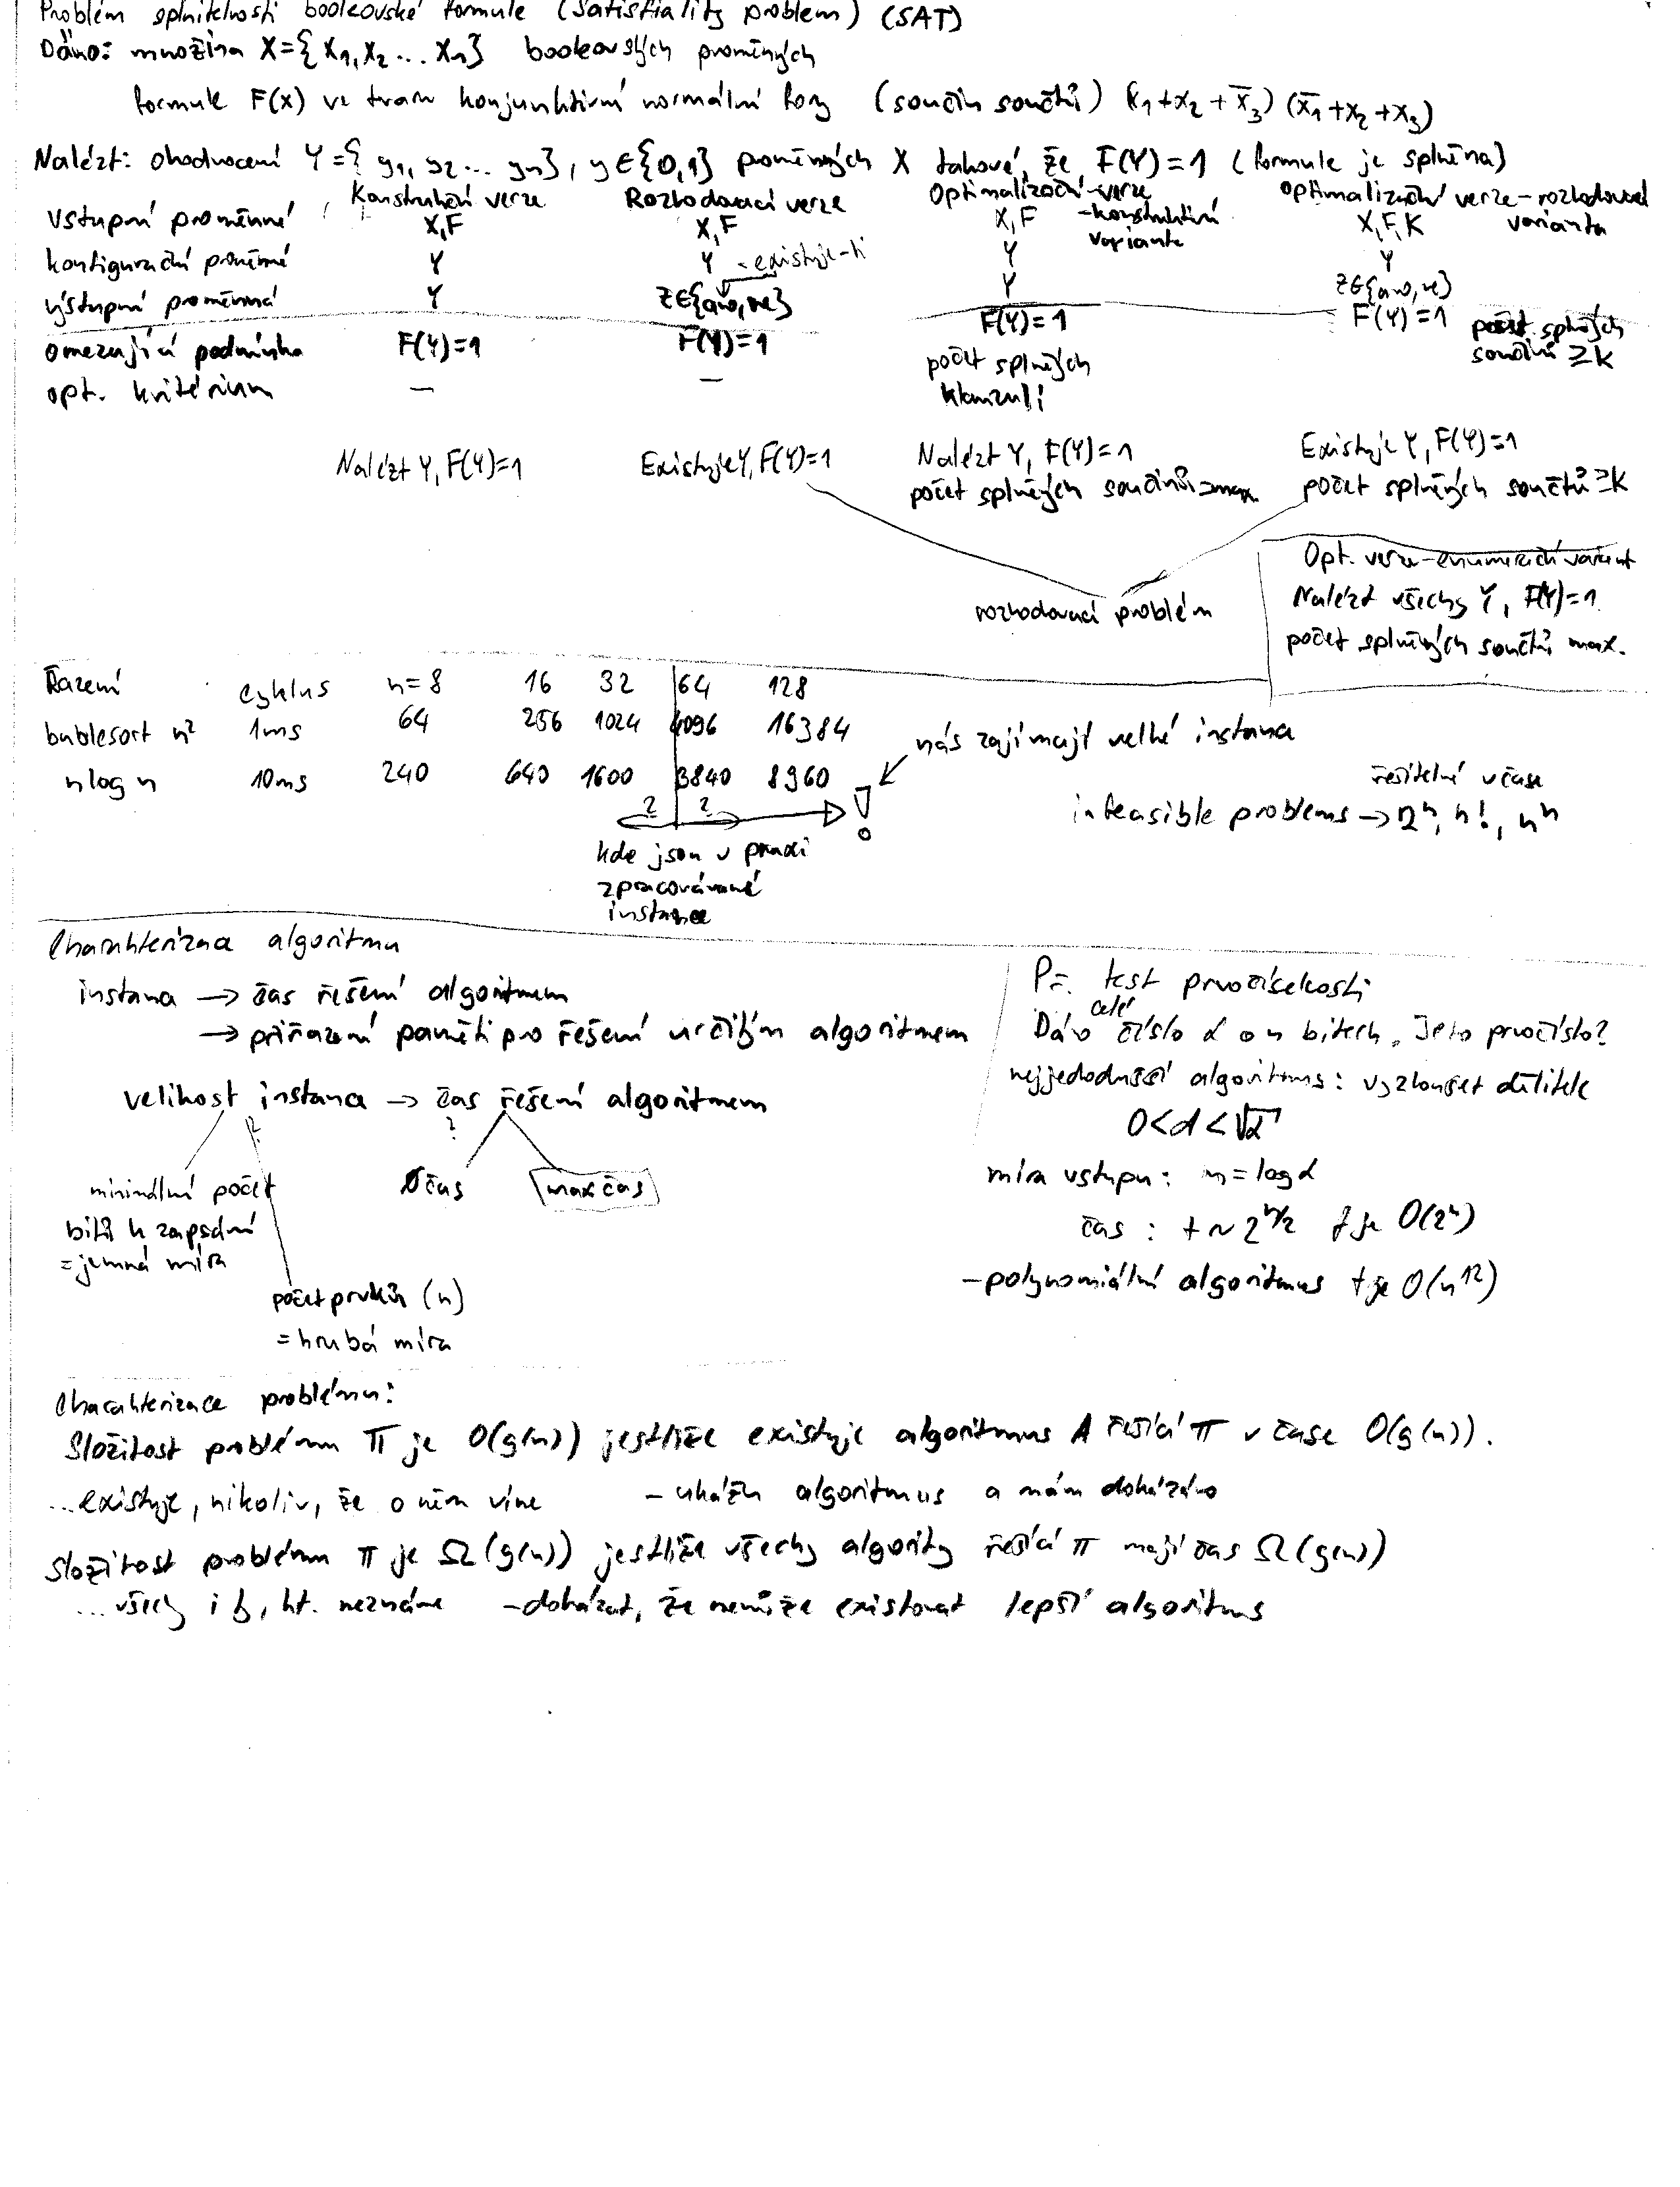 Problém splnitelnosti booleovské formule (Satisfiality problem) (SAT)
Dáno: množina X={x1, x2 ... xn} booleovských proměných
formule F(x) ve tvaru konjunktivní normální formy (součin součtů) (x1+x2+x̄3) (x̄1+x2+x3)
Nalézt: ohodnocení Y={y1, y2 ... yn}, y∈{0,1} proměnných X takové, že F(Y)=1 (formule je splněna)
Konstrukční verze Rozhodovací verze Optimalizační verze - konstruktivní varianta optimalizační verze - rozhodovací varianta
Vstupní proměnné X,F X,F X,F X,F,K
konfigurační proměnné Y Y - existuje-li Y Y
výstupní proměnná Y Z∈{ano,ne} Y Z∈{ano,ne}
omezující podmínka F(Y)=1 F(Y)=1 F(Y)=1 F(Y)=1 počet splněných součinů ≥K
opt. kritérium — — počet splněných klauzulí
Nalézt Y, F(Y)=1 Existuje Y, F(Y)=1 Nalézt Y, F(Y)=1 Existuje Y, F(Y)=1
počet splněných součinů = max. počet splněných součtů ≥K
rozhodovací problém
Opt. verze - enumerační variant
Nalézt všechy Y, F(Y)=1
počet splněných součtů max.
Řazení cyklus n=8 16 32 64 128
bublesort n² 1ms 64 256 1024 4096 16384
n log n 10ms 240 640 1600 3840 8960
? ? !
kde jsou v praxi
zpracovávané
instance
nás zajímají velké instance
řešitelné v čase
infeasible problems → 2ⁿ, n!, nⁿ
Charakterizace algoritmu
instance → čas řešení algoritmem
→ přiřazení paměti pro řešení určitým algoritmem
velikost instance → čas řešení algoritmem
?
minimální počet
bitů k zapsání
= jemná míra
?
počet prvků (n)
= hrubá míra
Ø čas max čas
Př. test prvočíselkosti
Dáno celé číslo α o n bitech. Je to prvočíslo?
nejjednodušší algoritmus: vyzkoušet dělitele
0<d<√α
míra vstupu: n = log α
čas: t ~ 2^n/2 t je O(2ⁿ)
- polynomiální algoritmus t je O(n¹²)
Charakterizace problému:
Složitost problému π je O(g(n)) jestliže existuje algoritmus A řešící π v čase O(g(n)).
...existuje, nikoliv, že o něm víme - ukážu algoritmus a mám dokázáno
Složitost problému π je Ω(g(n)) jestliže všechy algority řešící π mají čas Ω(g(n))
...všechy i ty, kt. neznáme - dokázat, že nemůže existovat lepší algoritmus